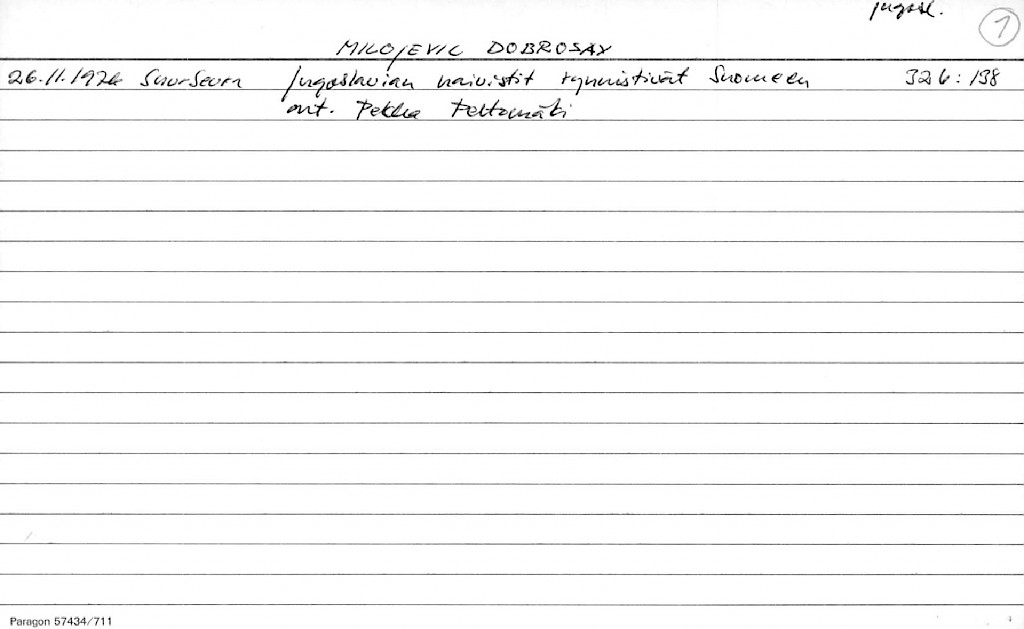 jugosl. 1
MILOJEVIC DOBROSAV
26.11.1976 Suur-Seura Jugoslavian naivistit rynnistivät Suomeen 326:138
ant. Pekka Peltomäki
Paragon 57434/711